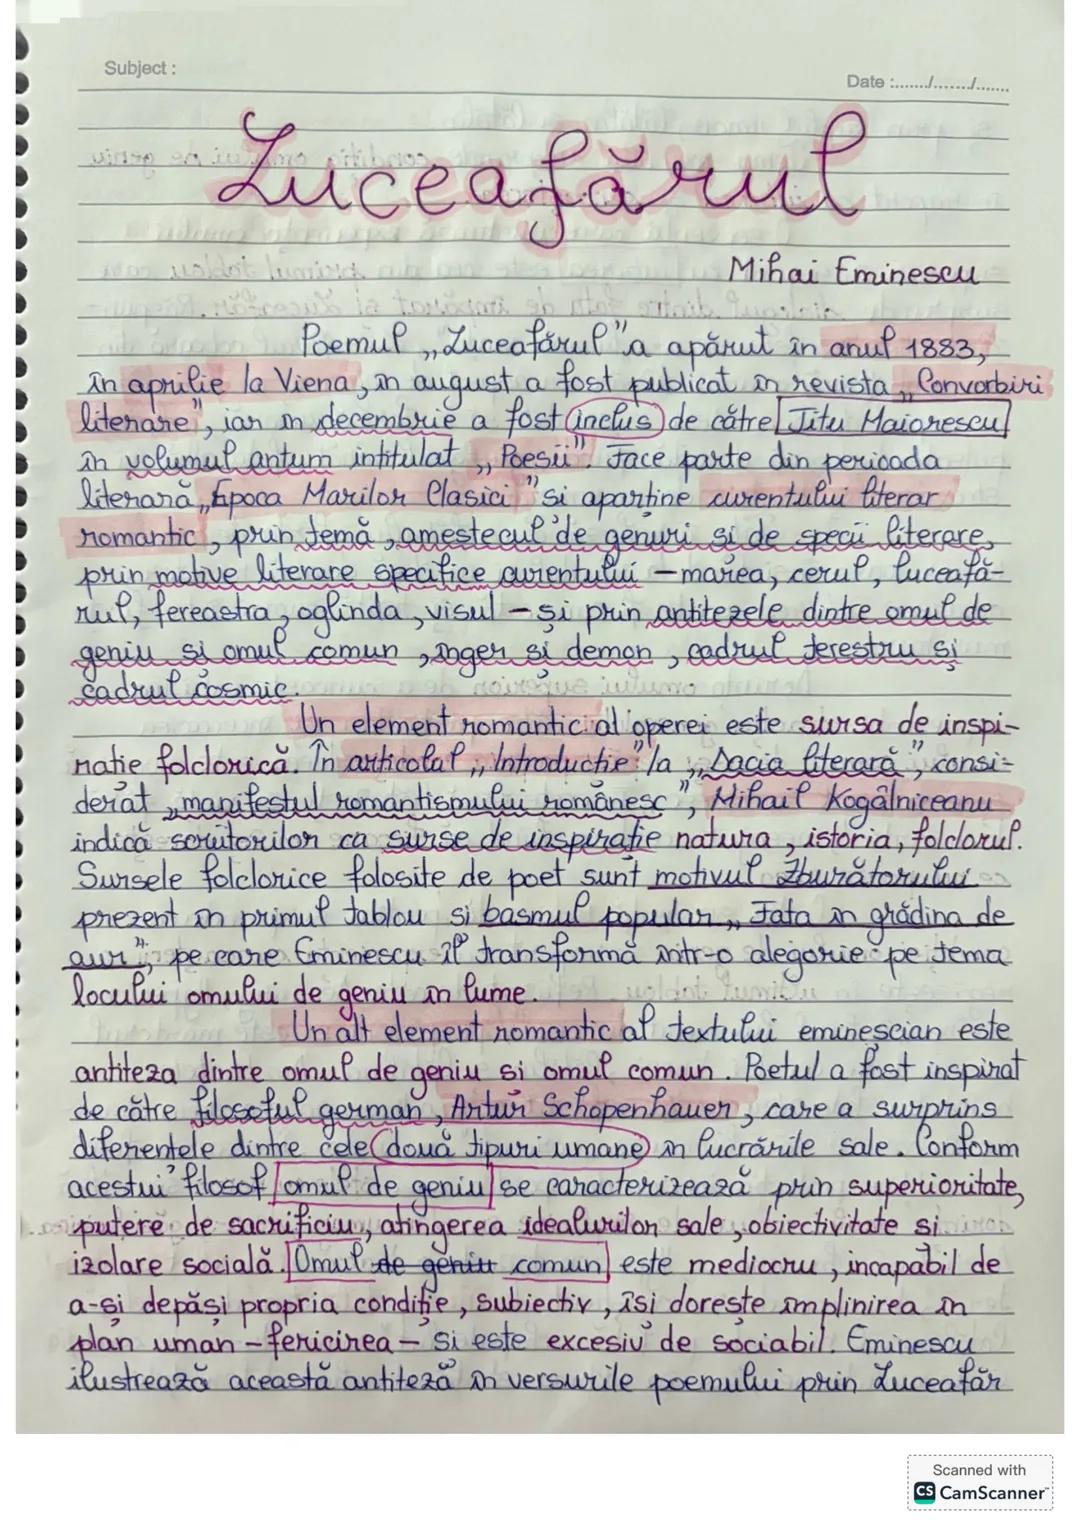 Subject :
Date :......./......./.......
Luceafărul
Mihai Eminescu
Poemul „Luceafărul" a apărut în anul 1883,
în aprilie la Viena, în august a fost publicat în revista „Convorbiri
literare", iar în decembrie a fost inclus de către Titu Maiorescu
în volumul antum intitulat „Poesii". Face parte din perioada
literară „Epoca Marilor Clasici" și aparține curentului literar
romantic, prin temă, amestecul de genuri și de specii literare,
prin motive literare specifice curentului – marea, cerul, luceafă-
rul, fereastra, oglinda, visul – și prin antitezele dintre omul de
geniu și omul comun, înger și demon, cadrul terestru și
cadrul cosmic.
Un element romantic al operei este sursa de inspi-
rație folclorică. În articolul „Introducție" la „Dacia literară", consi-
derat „manifestul romantismului românesc", Mihail Kogălniceanu
indică scriitorilor ca surse de inspirație natura, istoria, folclorul.
Sursele folclorice folosite de poet sunt motivul Zburătorului
prezent în primul tablou și basmul popular „Fata în grădina de
aur", pe care Eminescu îl transformă într-o alegorie pe tema
locului omului de geniu în lume.
Un alt element romantic al textului eminescian este
antiteza dintre omul de geniu și omul comun. Poetul a fost inspirat
de către filosoful german, Artur Schopenhauer, care a surprins
diferențele dintre cele două tipuri umane în lucrările sale. Conform
acestui filosof omul de geniu se caracterizează prin superioritate,
putere de sacrificiu, atingerea idealurilor sale, obiectivitate și
izolare socială. Omul de geniu comun este mediocru, incapabil de
a-și depăși propria condiție, subiectiv, își dorește împlinirea în
plan uman – fericirea – și este excesiv de sociabil. Eminescu
ilustrează această antiteză în versurile poemului prin Luceafăr
Scanned with
CS CamScanner